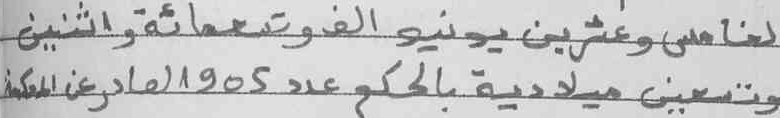 لخامس وعشرين يونيو الف وتسعمائة واثنين
وتسعين ميلادية بالحكم عدد 1905 الصادر عن المحكمة